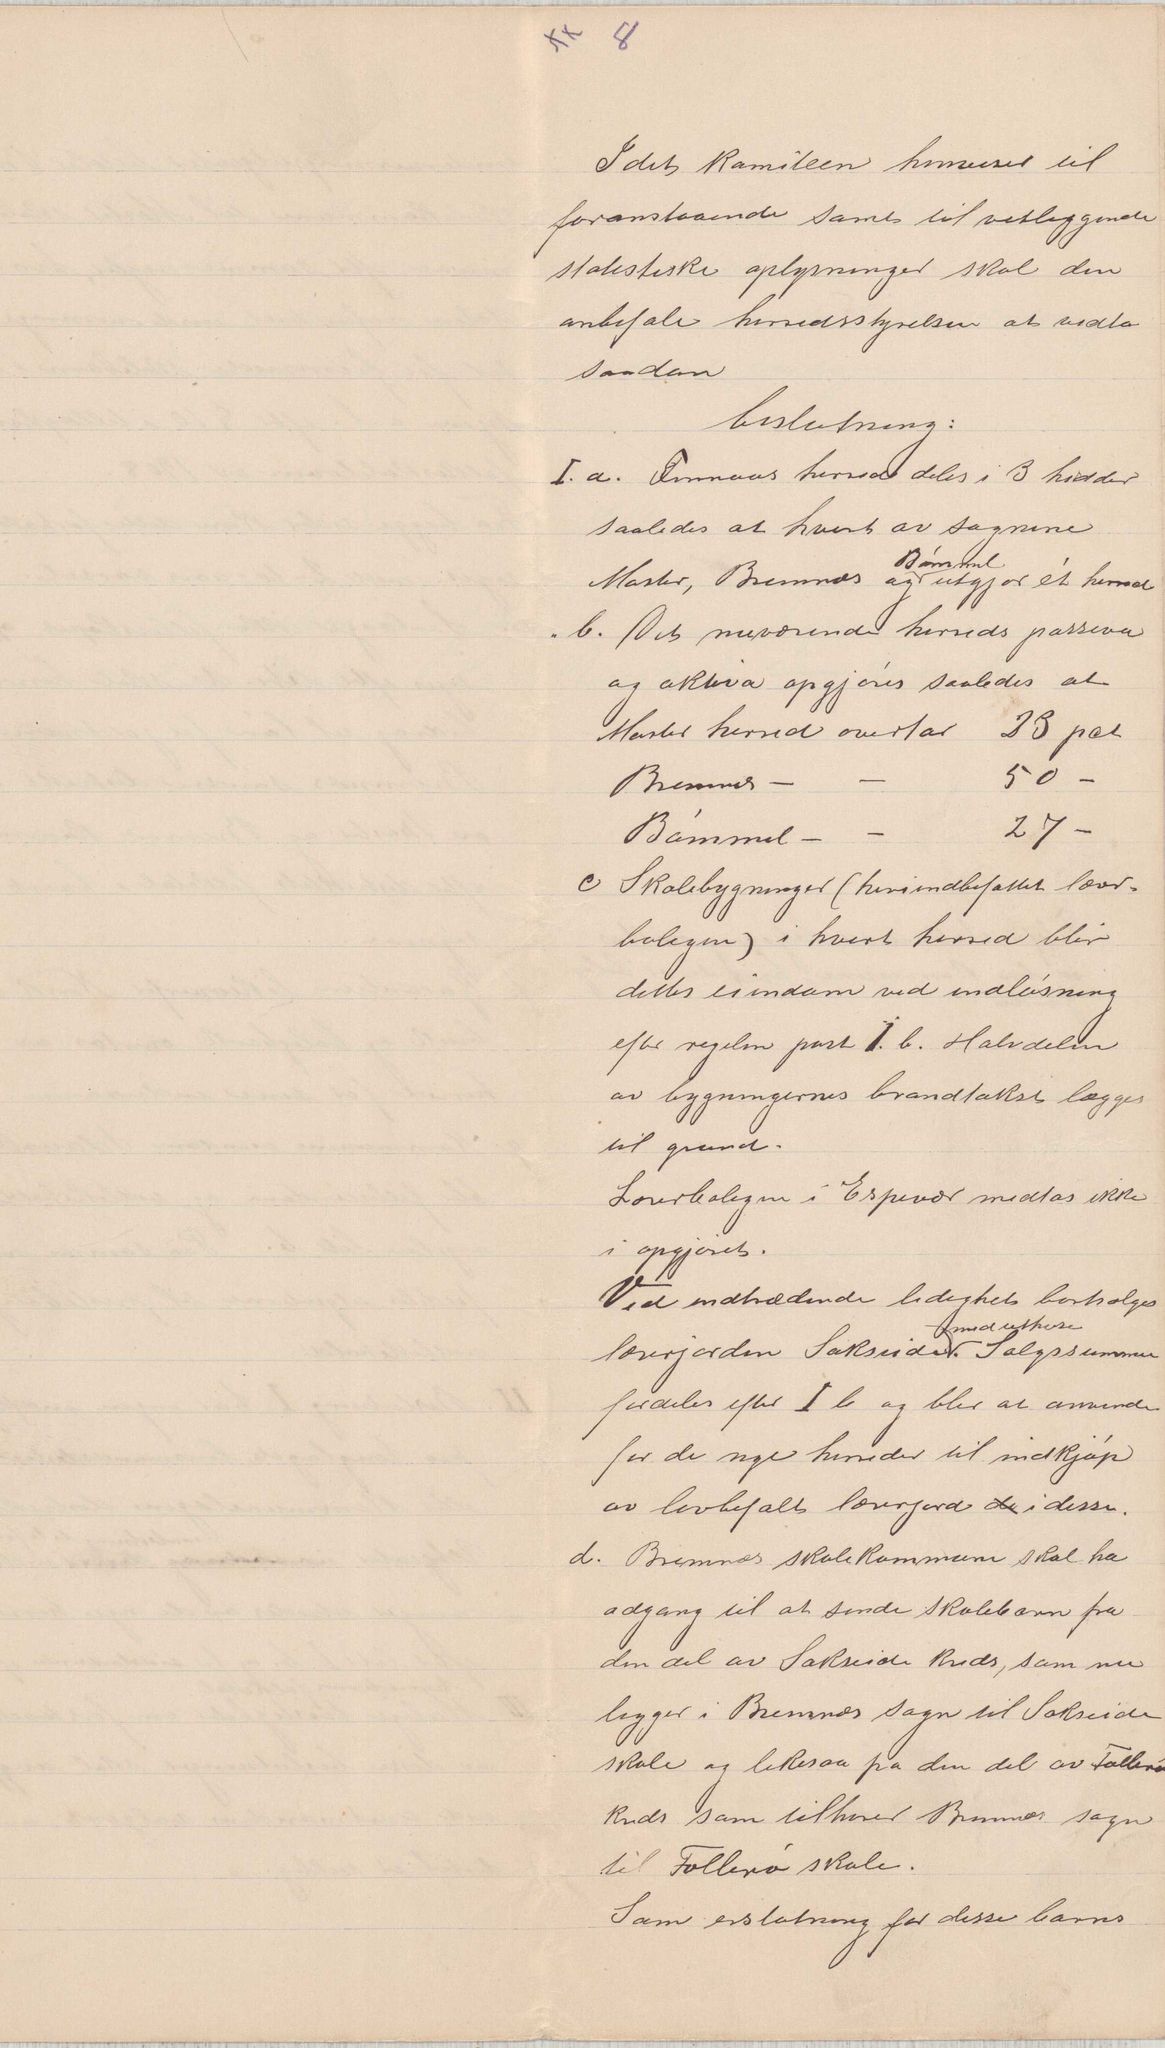 xx 8
Idet komiteen henviser til
foranstaaende samt til vedliggende
statistiske oplysninger skal den
anbefale herredsstyrelsen at vedta
saadan
beslutning:
I. a. Finnaas herred deles i 3 herder
saaledes at hvert av sognene
Moster, Bremnes og Bømmel utgjør ét herred
" b. Det nuværende herreds passiva
og aktiva opgjøres saaledes at
Moster herred overtar 23 pct
Bremnes — — 50 —
Bømmel — — 27 —
c Skolebygninger (heriindbefattet lærer-
boligen) i hvert herred blir
dettes eiendom ved indløsning
efter regelen post I. b. Halvdelen
av bygningernes brandtakst lægges
til grund.
Lærerboligen i Espevær medtas ikke
i opgjøret.
Ved indtrædende ledighet bortsælges
lærerjorden Sakseide med uthuse. Salgssummen
fordeles efter I b og blir at anvende
for de nye herreder til indkjøp
av lovbefalt lærerjord i disse.
d. Bremnes skolekommune skal ha
adgang til at sende skolebarn fra
den del av Sakseide kreds, som nu
ligger i Bremnes sogn til Sakseide
skole og likesaa fra den del av Follerø
kreds som tilhører Bremnes sogn
til Follerø skole.
Som erstatning for disse barns